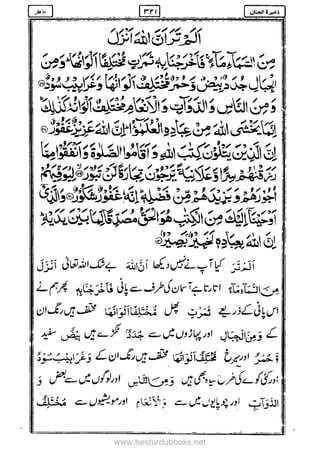 فاطر ۳۲۱ ذخيرة الجنان
اَلَمْ تَرَ اَنَّ اللّٰهَ اَنْزَلَ
مِنَ السَّمَآءِ مَآءً فَاَخْرَجْنَا بِهٖ ثَمَرٰتٍ مُّخْتَلِفًا اَلْوَانُهَا وَمِنَ
الْجِبَالِ جُدَدٌ بِيْضٌ وَّحُمْرٌ مُّخْتَلِفٌ اَلْوَانُهَا وَغَرَابِيْبُ سُوْدٌ
وَمِنَ النَّاسِ وَالدَّوَآبِّ وَالْاَنْعَامِ مُخْتَلِفٌ اَلْوَانُهٗ كَذٰلِكَ
اِنَّمَا يَخْشَى اللّٰهَ مِنْ عِبَادِهِ الْعُلَمٰٓؤُا اِنَّ اللّٰهَ عَزِيْزٌ غَفُوْرٌ
اِنَّ الَّذِيْنَ يَتْلُوْنَ كِتٰبَ اللّٰهِ وَاَقَامُوا الصَّلٰوةَ وَاَنْفَقُوْا مِمَّا
رَزَقْنٰهُمْ سِرًّا وَّعَلَانِيَةً يَّرْجُوْنَ تِجَارَةً لَّنْ تَبُوْرَ لِيُوَفِّيَهُمْ
اُجُوْرَهُمْ وَيَزِيْدَهُمْ مِّنْ فَضْلِهٖ اِنَّهٗ غَفُوْرٌ شَكُوْرٌ وَالَّذِيْٓ
اَوْحَيْنَآ اِلَيْكَ مِنَ الْكِتٰبِ هُوَ الْحَقُّ مُصَدِّقًا لِّمَا بَيْنَ يَدَيْهِ
اِنَّ اللّٰهَ بِعِبَادِهٖ لَخَبِيْرٌ بَصِيْرٌ
اَلَمْ تَرَ کیا آپ نے نہیں دیکھا اَنَّ اللّٰهَ بے شک اللہ تعالیٰ اَنْزَلَ
مِنَ السَّمَآءِ مَآءً اتارتا ہے آسمان کی طرف سے پانی فَاَخْرَجْنَا بِهٖ پھر ہم نے
اس پانی کے ذریعے ثَمَرٰتٍ پھل مُّخْتَلِفًا اَلْوَانُهَا مختلف ہیں رنگ ان
کے وَمِنَ الْجِبَالِ اور پہاڑوں میں سے جُدَدٌ ٹکڑے ہیں بِيْضٌ سفید
وَّحُمْرٌ اور سرخ مُّخْتَلِفٌ اَلْوَانُهَا مختلف ہیں رنگ ان کے وَغَرَابِيْبُ سُوْدٌ
اور کئی کوے کی طرح سیاہ بھی ہیں وَمِنَ النَّاسِ اور لوگوں میں سے بعض وَ
الدَّوَآبِّ اور چوپایوں میں سے وَالْاَنْعَامِ اور مویشیوں سے مُخْتَلِفٌ
www.besturdubooks.net